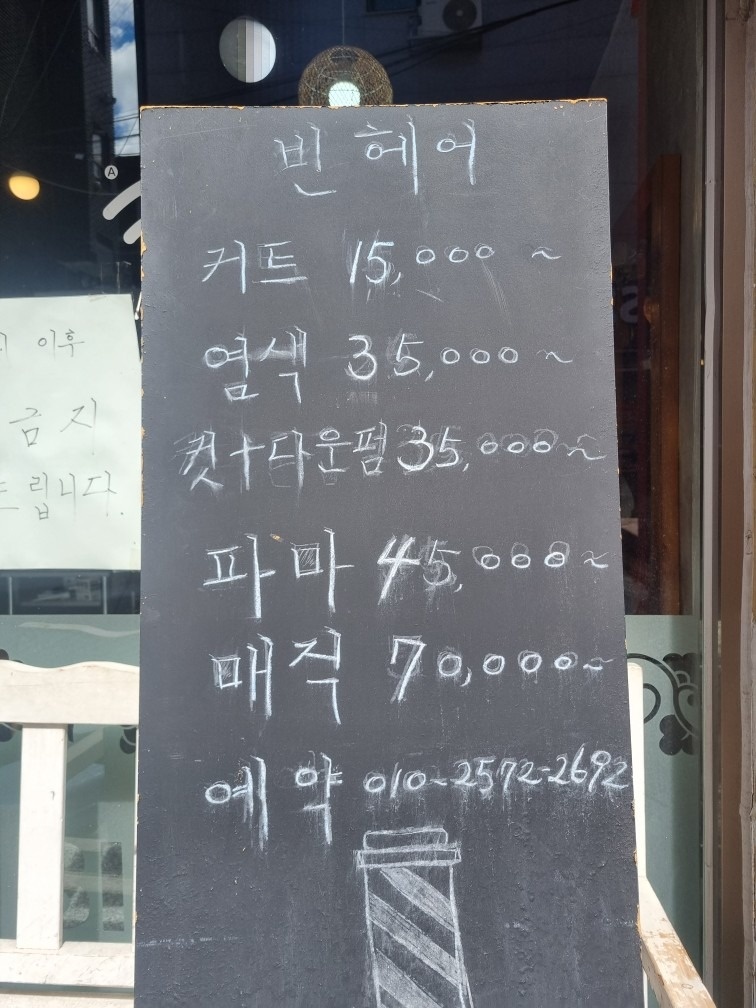 빈 헤어
커트 15,000 ~
염색 35,000 ~
컷+다운펌 35,000 ~
파마 45,000 ~
매직 70,000 ~
예약 010-2572-2692
이후
금지
드립니다.
A